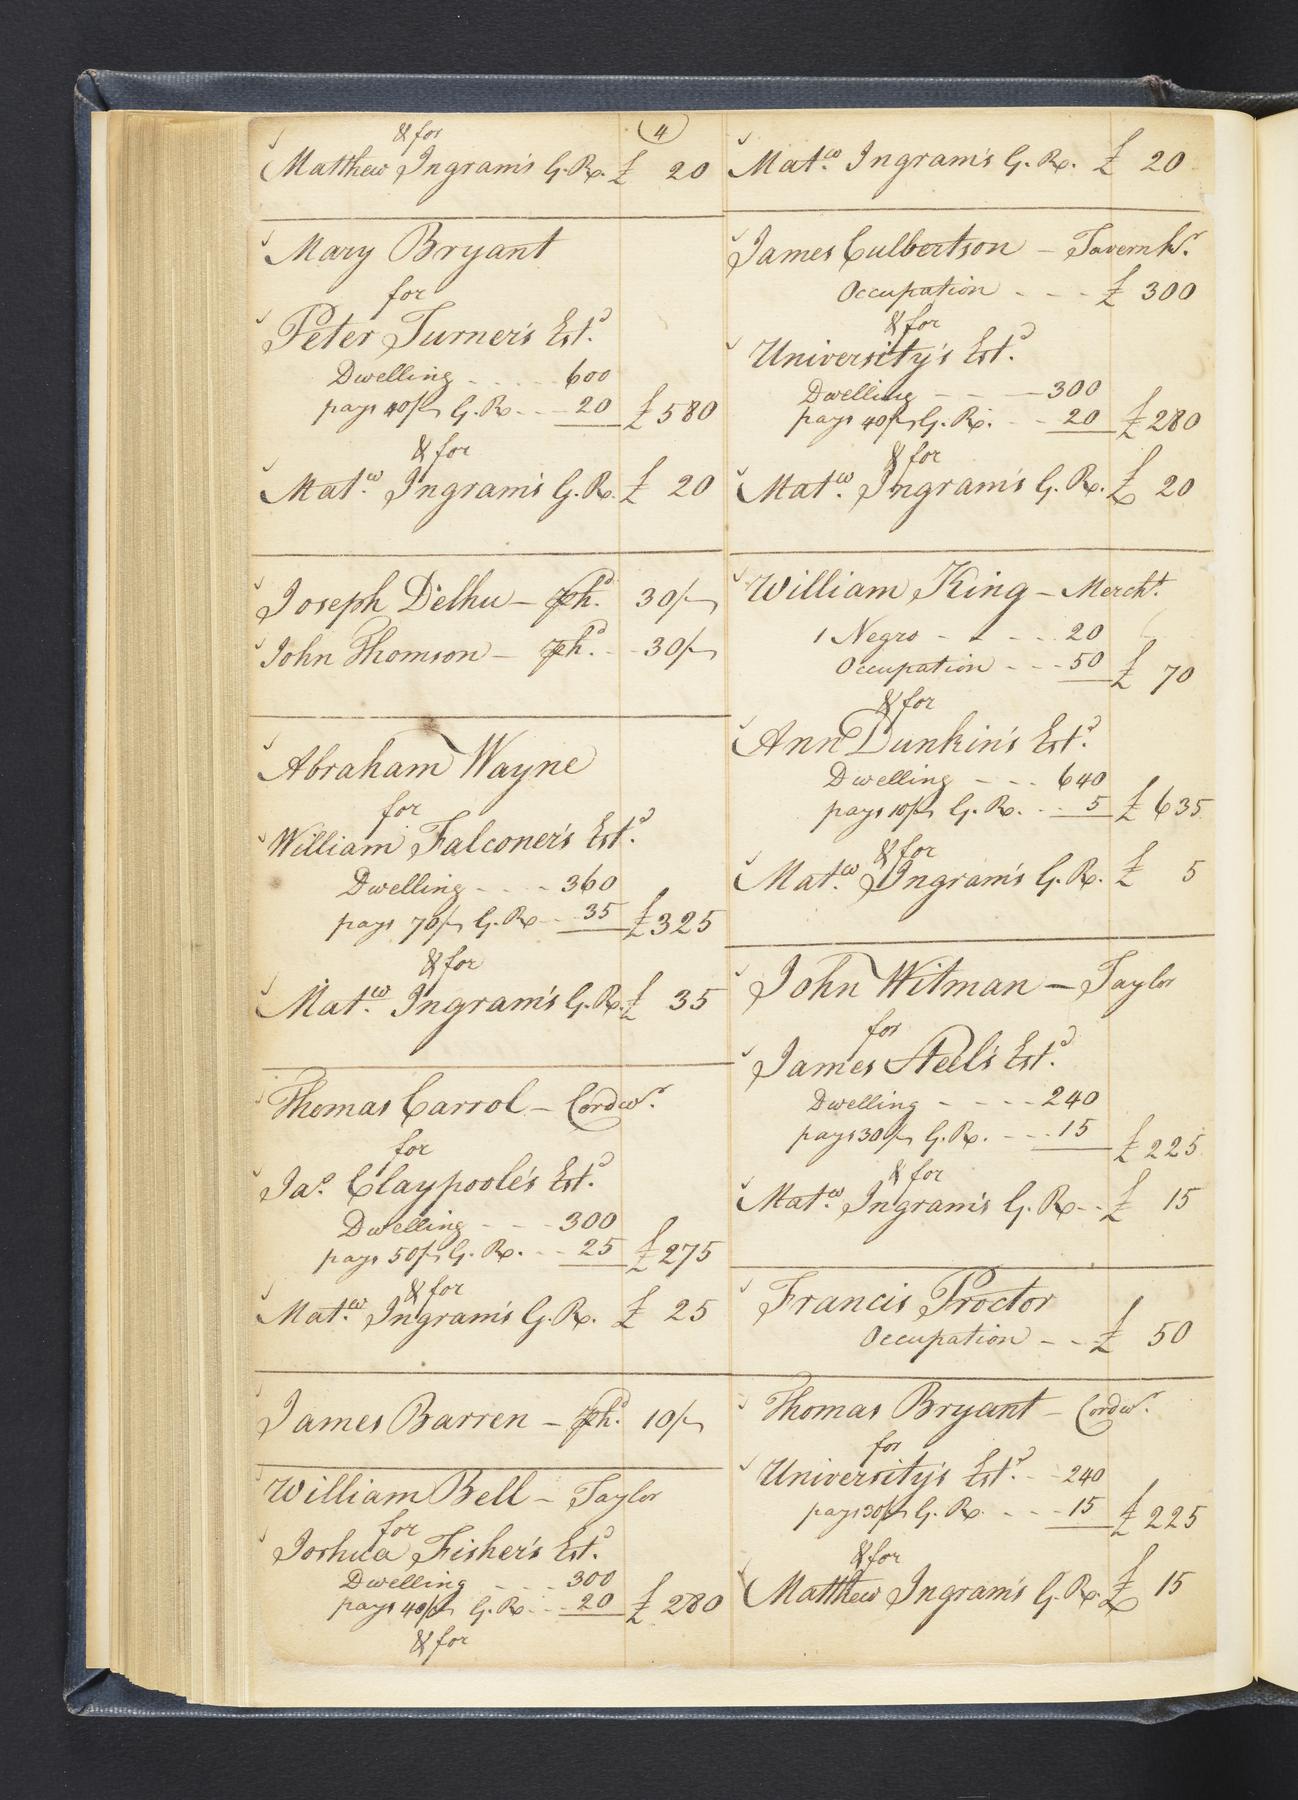 4
& for
Matthew Ingram's G. R. £ 20
Mary Bryant
for
Peter Turner's Est.d
Dwelling - - - - 600
pays 40/ G. R. - - - 20 £ 580
& for
Mat.w Ingram's G. R. £ 20
Joseph Delhu - ph.d 30/
John Thomson - ph.d - - 30/
Abraham Wayne
for
William Falconer's Est.d
Dwelling - - - - 360
pays 70/ G. R. - - 35 £ 325
& for
Mat.w Ingram's G. R. £ 35
Thomas Carrol - Cordw.r
for
Ja.s Claypoole's Est.d
Dwelling - - - 300
pays 50/ G. R. - - - 25 £ 275
& for
Mat.w Ingram's G. R. £ 25
James Barren - ph.d 10/
William Bell - Taylor
for
Joshua Fisher's Est.d
Dwelling - - - 300
pays 40/ G. R. - - - 20 £ 280
& for
Mat.w Ingram's G. R. £ 20
James Culbertson - Tavernk.r
Occupation - - - £ 300
& for
University's Est.d
Dwelling - - - 300
pays 40/ G. R. - - 20 £ 280
& for
Mat.w Ingram's G. R. £ 20
William King - Merch.t
1 Negro - - - - 20
Occupation - - - 50 £ 70
& for
Ann Dunkin's Est.d
Dwelling - - - 640
pays 10/ G. R. - - 5 £ 635
& for
Mat.w Ingram's G. R. £ 5
John Witman - Taylor
for
James Steel's Est.d
Dwelling - - - - 240
pays 30/ G. R. - - - 15 £ 225
& for
Mat.w Ingram's G. R. - - £ 15
Francis Proctor
Occupation - - £ 50
Thomas Bryant - Cordw.r
for
University's Est.d - - 240
pays 30/ G. R. - - - 15 £ 225
& for
Matthew Ingram's G. R. £ 15